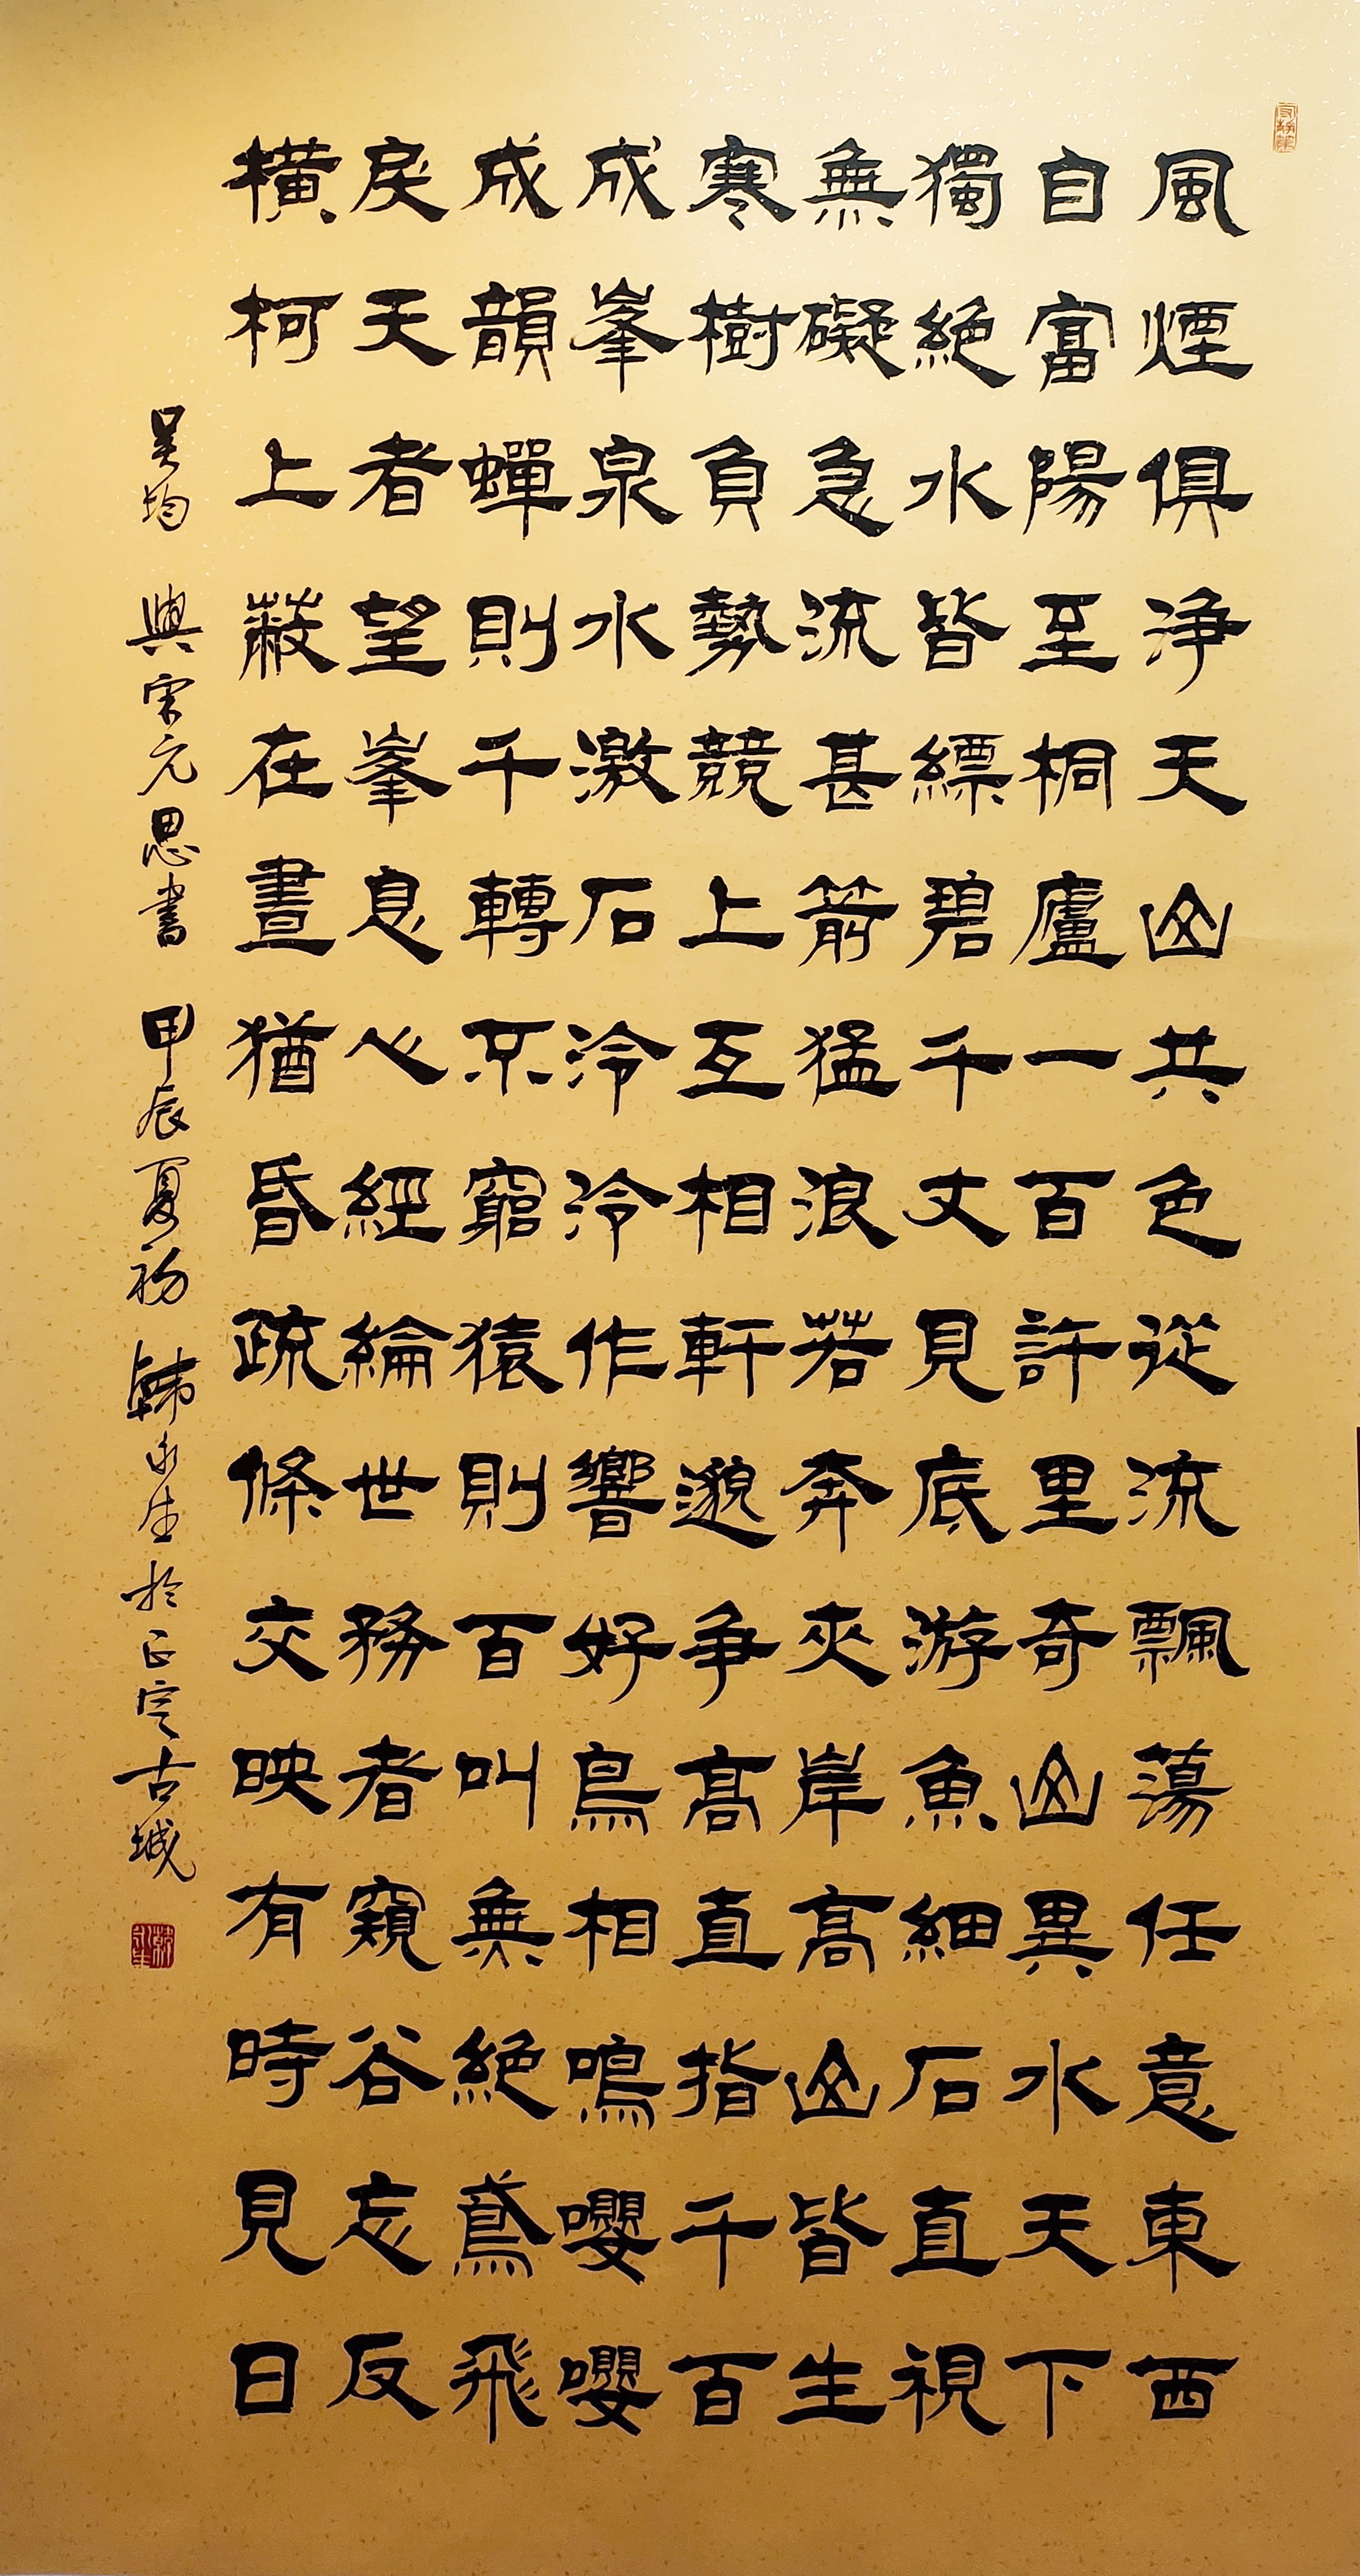 風煙俱淨天山共色從流飄蕩任意東西
自富陽至桐廬一百許里奇山異水天下
獨絕水皆縹碧千丈見底游魚細石直視
無礙急流甚箭猛浪若奔夾岸高山皆生
寒樹負勢競上互相軒邈爭高直指千百
成峯泉水激石泠泠作響好鳥相鳴嚶嚶
成韻蟬則千轉不窮猿則百叫無絕鳶飛
戾天者望峯息心經綸世務者窺谷忘反
橫柯上蔽在晝猶昏疏條交映有時見日
吳均 與宋元思書 甲辰夏初 韓永生於正定古城